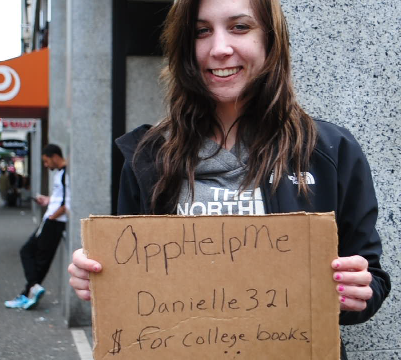 THE
NORTH
AppHelpMe
Danielle 321
$ for college books.